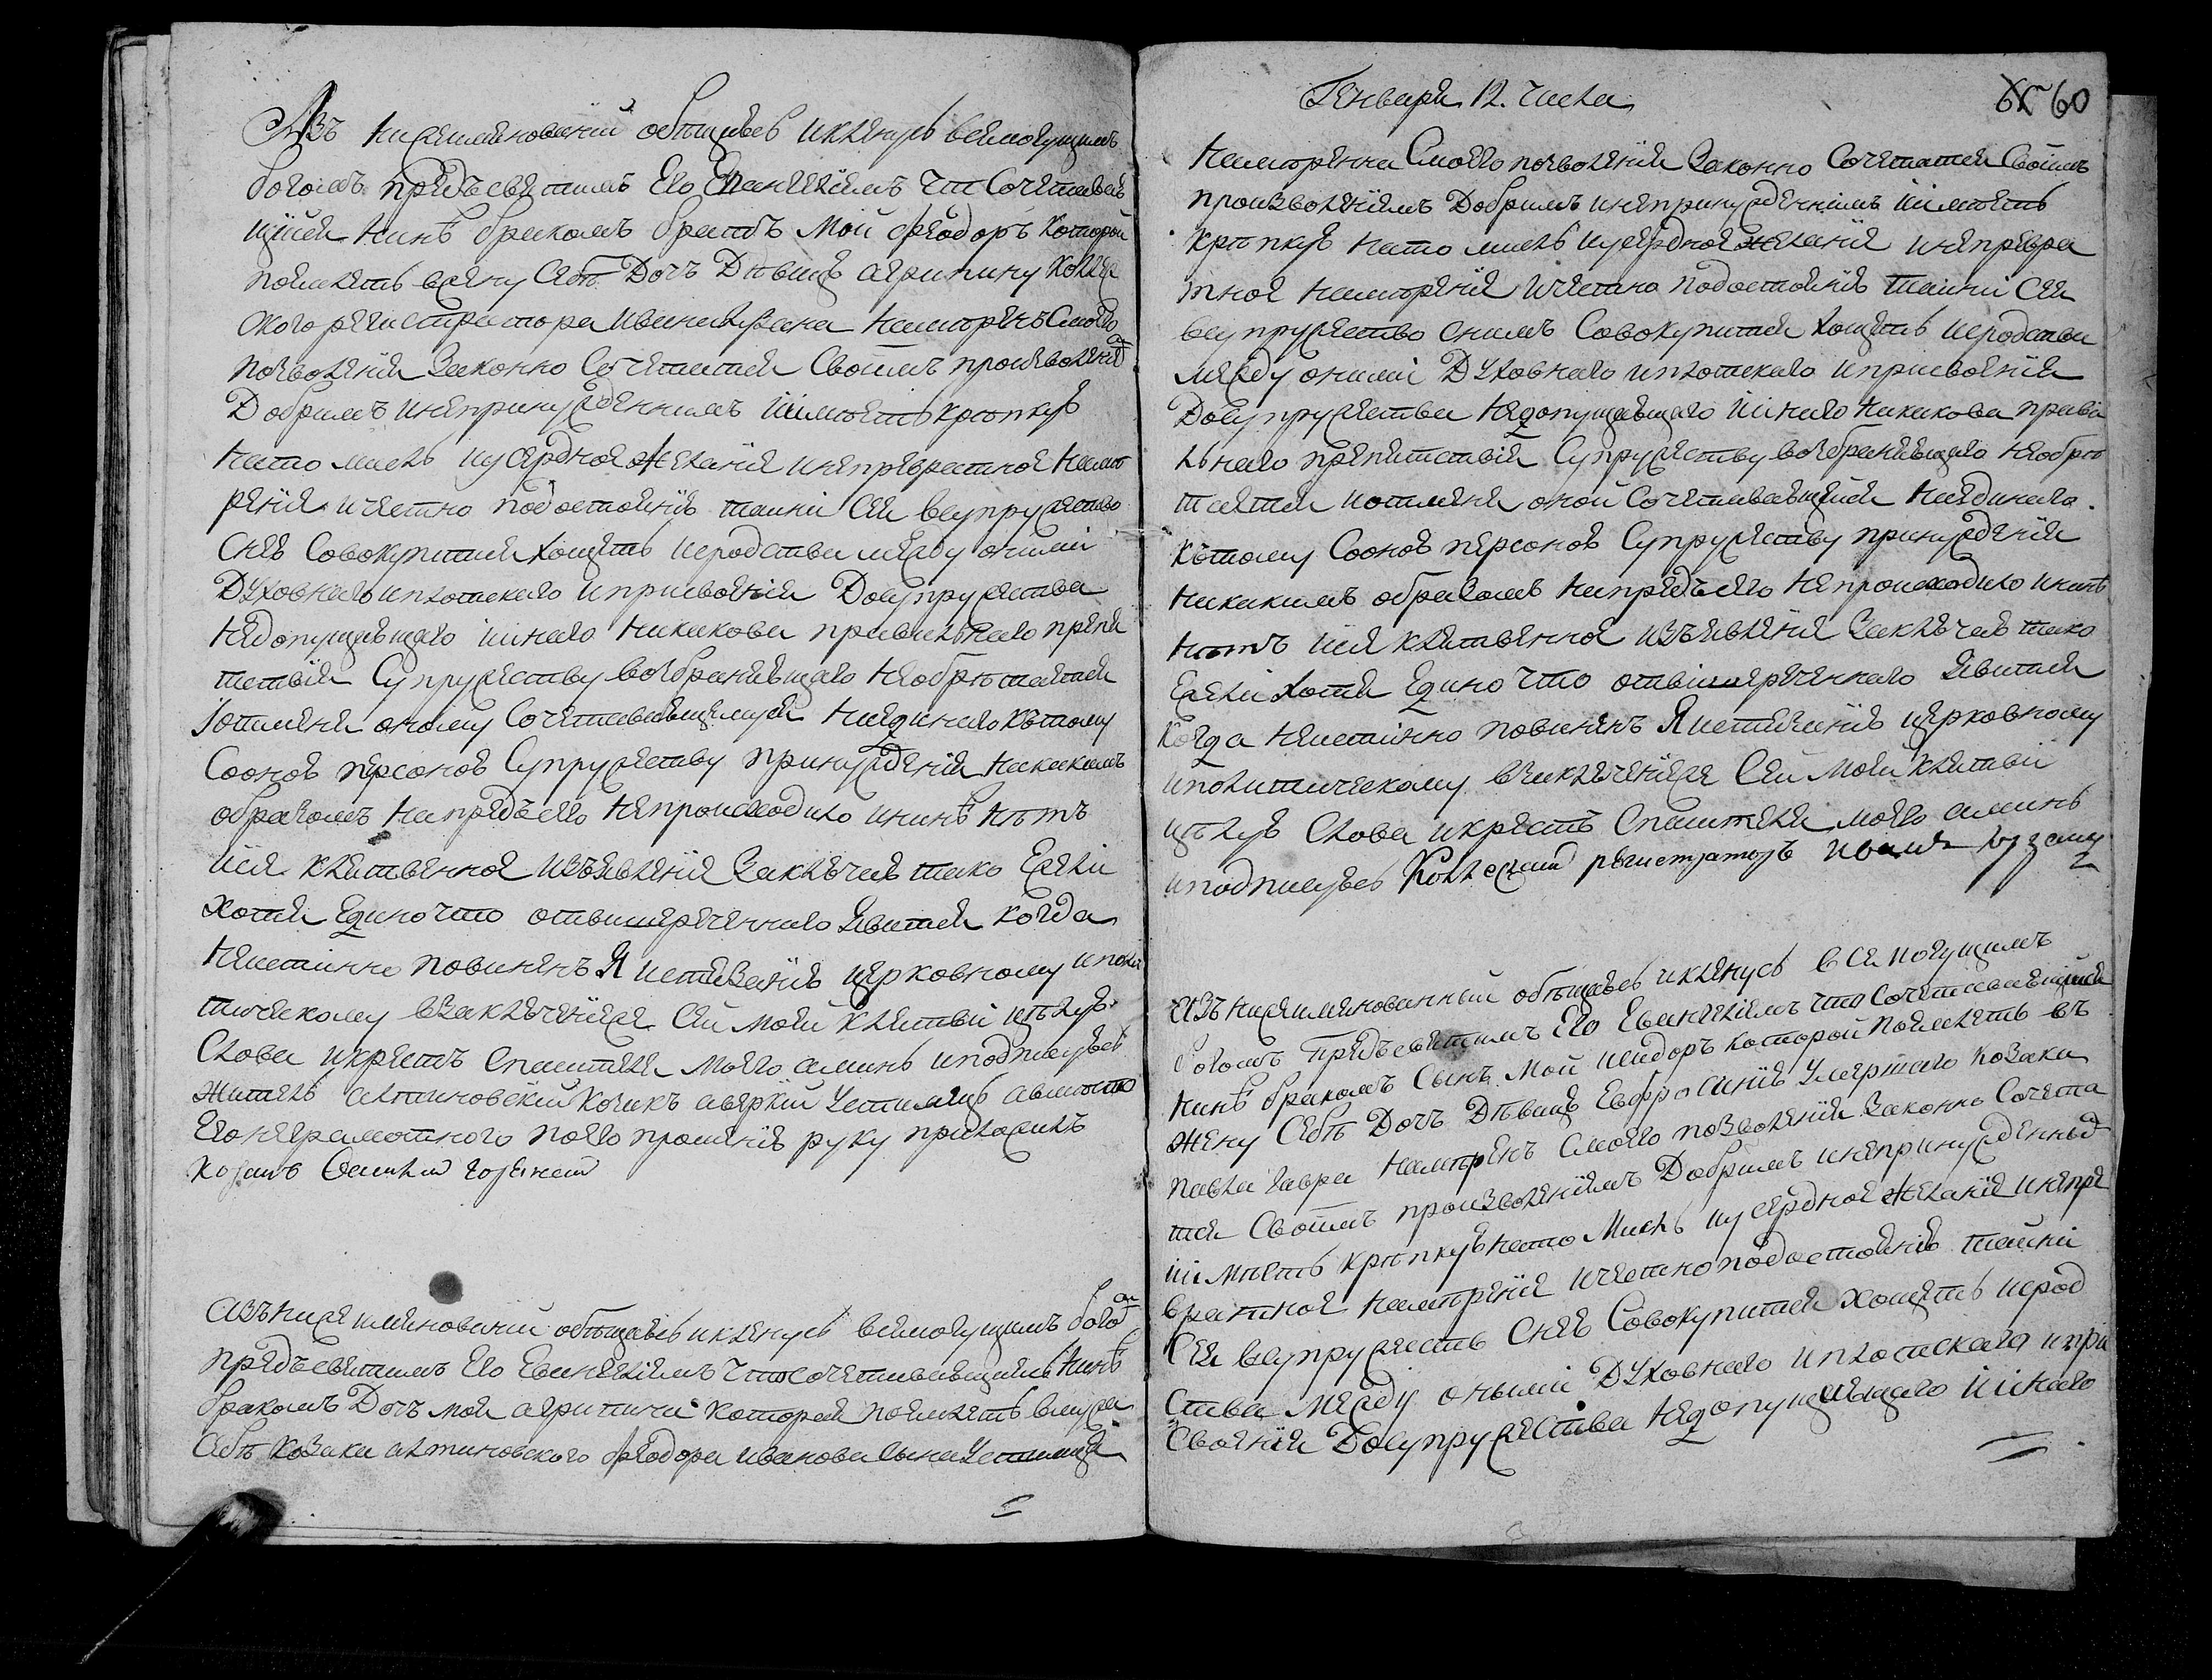 Азъ нижеименований обѣщаюсь и кленусь всемогущимъ
богомъ предъ святимъ Его Евангелиемъ что сочетаваю
щийся нинѣ бракомъ братъ мой феодоръ которой
поемлетъ в жену себѣ дочъ девицу агрипину коллеж
ского регистратора Ивана намѣренъ с моего
позволения законно сочетатися своимъ произволениемъ
Добримъ и непринужденнимъ и имѣетъ крѣпкую
на то мисль и усердное желание и непревратное намѣ
рение и честно по достоянию таини сея в супружество
с нею совокупитися хощетъ и сродства между оними
Духовнаго и плотскаго и присвоения до супружества
недопущающаго и инаго никакова правилнаго препя
тствия супружеству возбраняющаго не обрѣтается
и от мене оному сочетавающемуся ни единаго къ тому
с оною персоною супружеству принуждения никакимъ
образомъ напредъ сего не происходило и нинѣ нѣтъ
и сие клятвенное изъявление заключаю тако Ежели
хотя едино что от вишереченнаго явится когда
неистинно повиненъ я истязанию церковному и поли
тическому в заключение же сей моей клятви цѣлую
слова и крестъ Спасителя моего аминь и подписуюсь
житель алтиновский козакъ аверкий Устимецъ а вместо
Его неграмотного по его прошению руку приложилъ
козакъ
азъ нижеименований обѣщаюсь и кленусь всемогущимъ богомъ
предъ святимъ Его Евангелиемъ что сочетавающаясь нинѣ
бракомъ Дочъ моя агрипина которая поемлетъ в мужа
себѣ козака алтиновского феодора иванова сына Устимца
Генваря 12. числа
60
намѣренна с моего позволения законно сочетатися своимъ
произволениемъ Добримъ и непринужденнимъ и имѣетъ
крѣпкую на то мисль и усердное желание и непревра
тное намѣрение и честно по достоянию таини сея
в супружество с нимъ совокупитися хощетъ и сродства
между оними Духовнаго и плотскаго и присвоения
до супружества недопущающаго и инаго никакова прави
лнаго препятствия супружеству возбраняющаго не обрѣ
тается и от мене оной сочетавающейся ни единаго
къ тому с оною персоною супружеству принуждения
никакимъ образомъ напредъ сего не происходило и нинѣ
нѣтъ и сие клятвенное изъявление заключаю тако
Ежели хотя едино что от вишереченнаго явится
когда неистинно повиненъ я истязанию церковному
и политическому в заключение же сей моей клятви
цѣлую слова и крестъ Спасителя моего аминь
и подписуюсь Коллежский регистраторъ Иванъ
Азъ нижеименованный обѣщаюсь и кленусь всемогущимъ
богомъ предъ святимъ Его Евангелиемъ что сочетавающийся
нинѣ бракомъ сынъ мой исидоръ которой поемлетъ въ
жену себѣ Дочъ Дѣвицу Евфросинию умершего козака
павла гавра намѣренъ с моего позволения законно сочета
тися своимъ произволениемъ Добримъ и непринужденнымъ
и имѣетъ крѣпкую на то мисль и усердное желание и непре
вратное намѣрение и честно по достоянию таини
сея в супружесть с нею совокупитися хощетъ и срод
ства между оными Духовнаго и плотскаго и при
своения до супружества недопущающаго и инаго